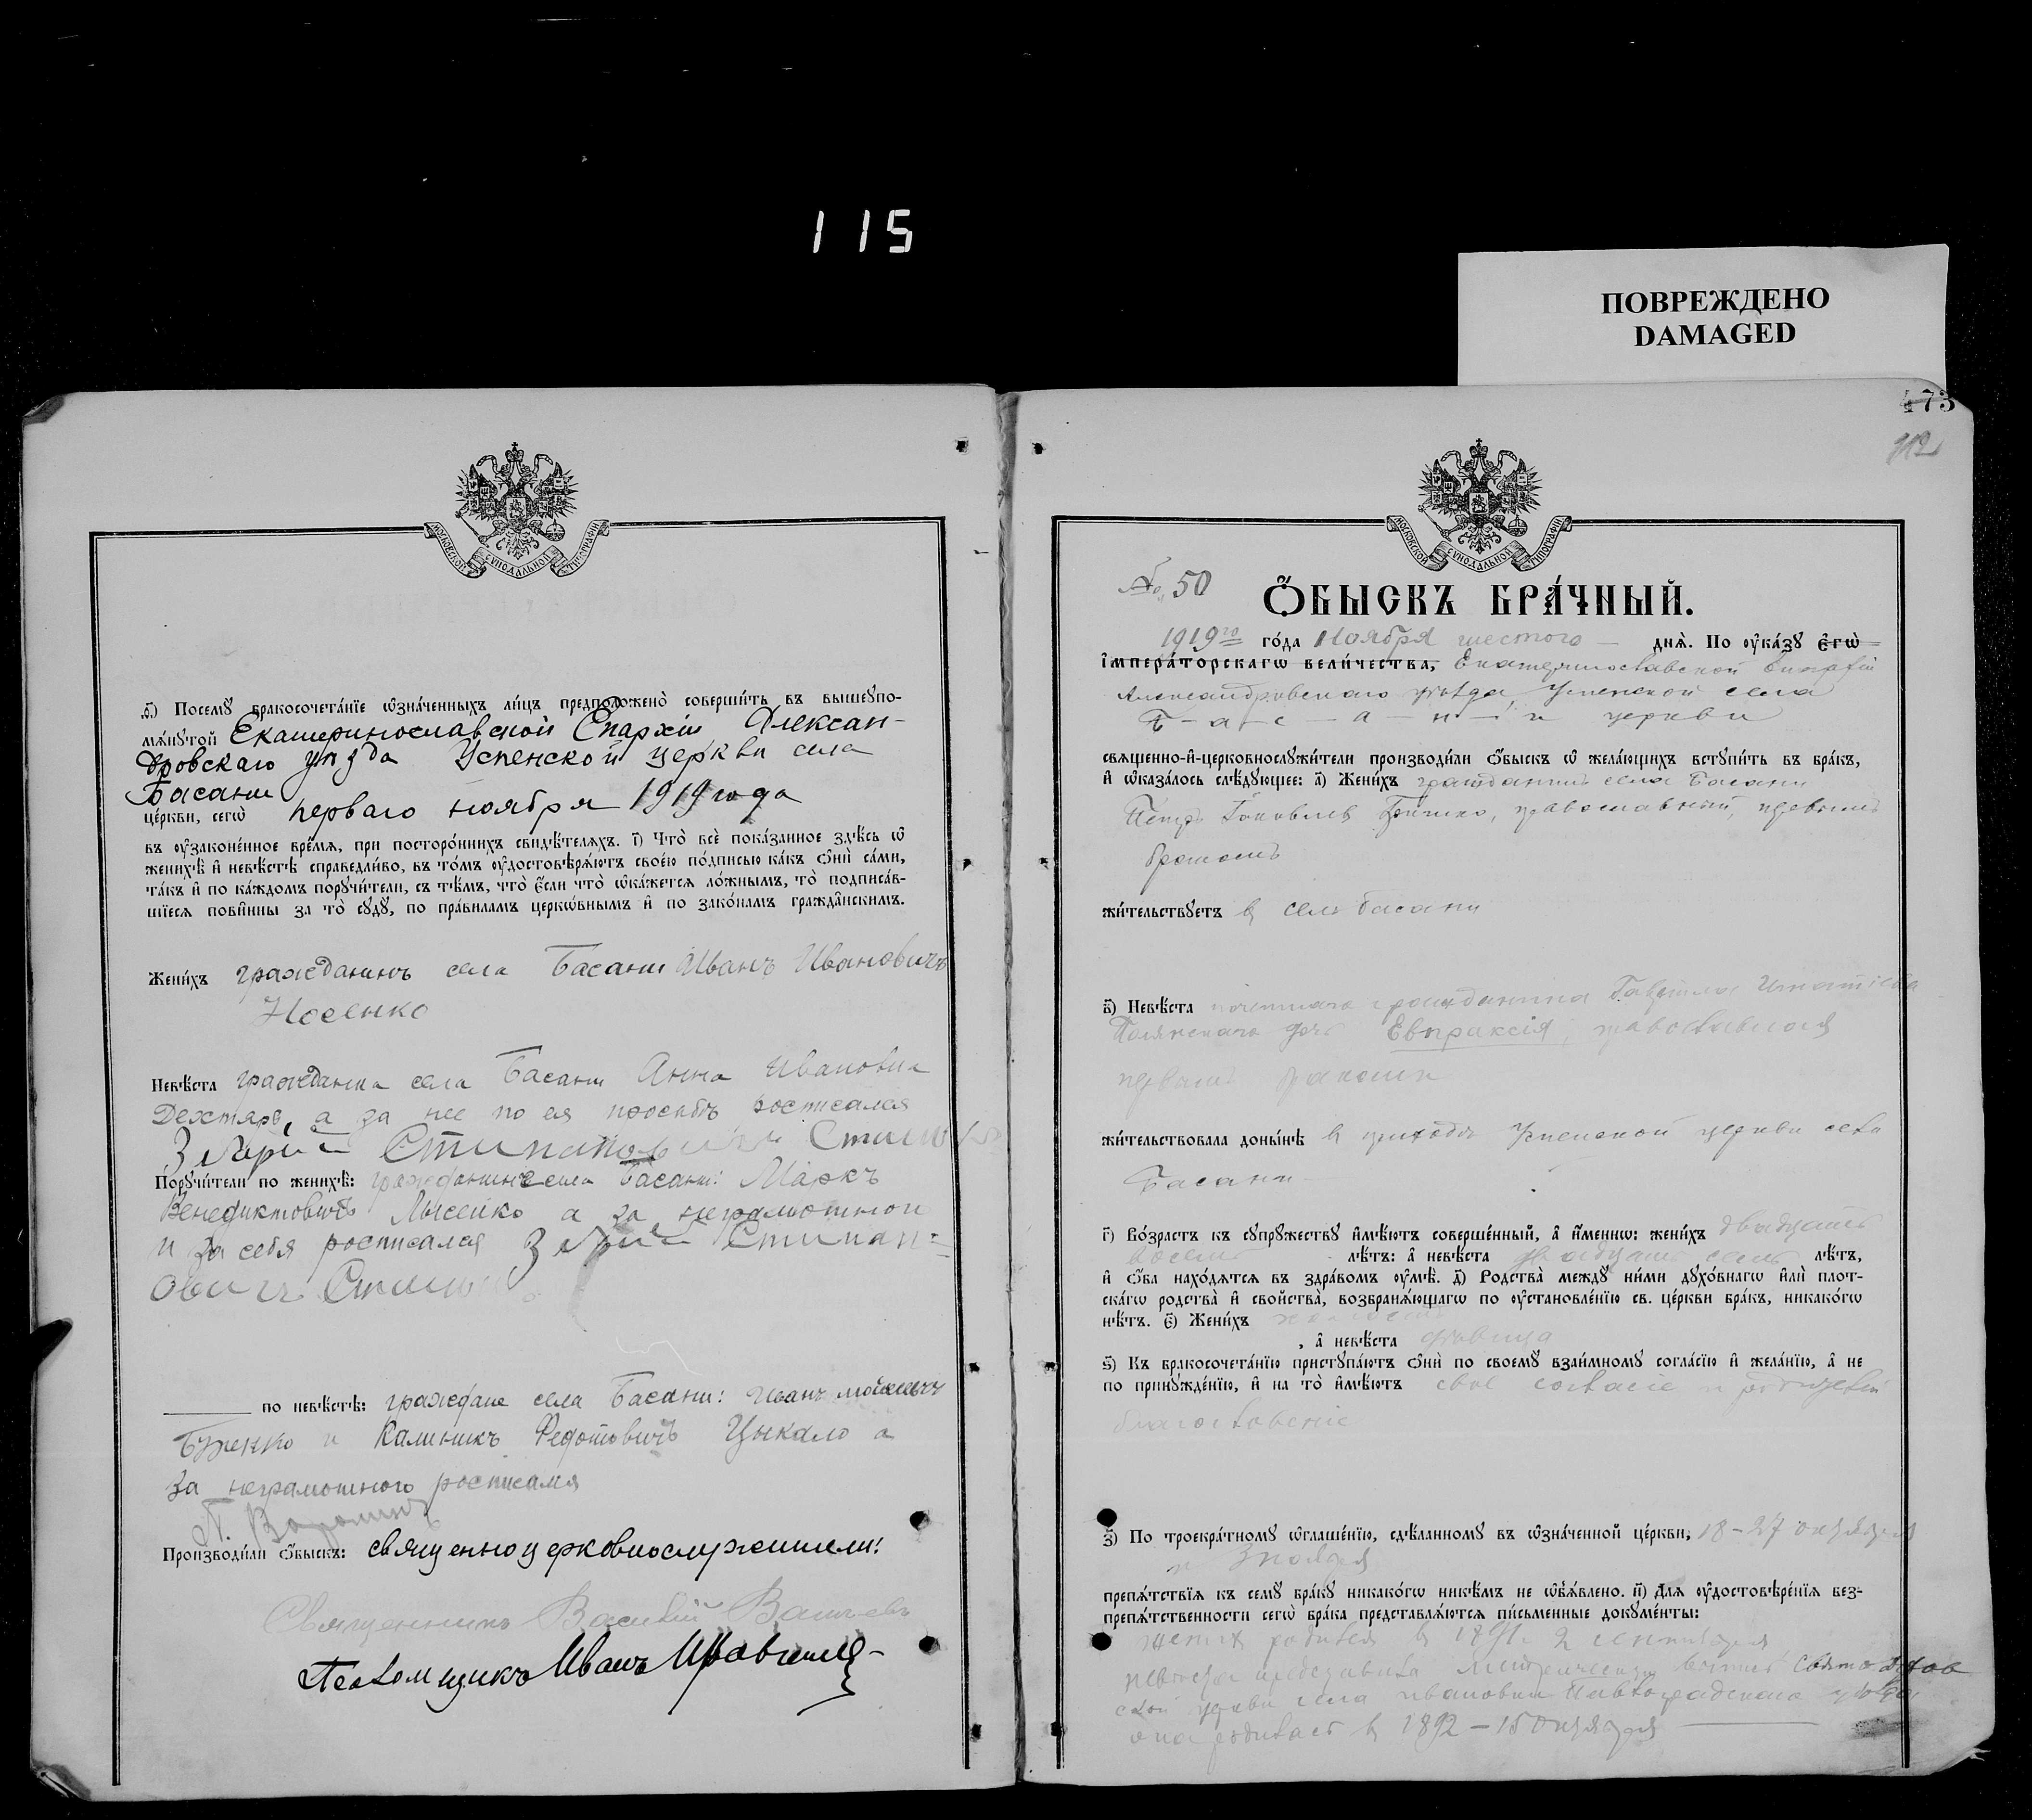 115
ПОВРЕЖДЕНО
DAMAGED
МОСКОВСКОЙ СѴНОДАЛЬНОЙ ТИПОГРАФІИ
Посемꙋ бракосочетанїе ѡзначенныхъ лицъ предположено совершить въ вышеꙋпо-
мѧнꙋтой Екатеринославской Епархіи, Алексан-
дровскаго уѣзда Успенской церкви села
Басани
церкви, сегѡ перваго ноября 1919 года
въ ᲂузаконенное время, при постороннихъ свидѣтеляхъ. і) Что все показанное здѣсь ѡ
женихѣ и невѣстѣ справедливо, въ томъ ᲂудостовѣряютъ своею подписью какъ ѻни сами,
такъ и по каждомъ порꙋчители, съ тѣмъ, что если что ѡкажется ложнымъ, то подписав-
шїеся повинны за то сꙋдꙋ, по правиламъ церковнымъ и по законамъ гражданскимъ.
Женихъ гражданинъ села Басани Иванъ Ивановичъ
Носенко
Невѣста гражданка села Басани Анна Ивановна
Дехтярь, а за нее по ея просьбѣ росписался
Порꙋчители по женихѣ: гражданинъ села Басани: Маркъ
Венедиктовичъ Лысенко а за неграмотного
и за себя росписался
по невѣстѣ: граждане села Басани: Иванъ
и Калиникъ Федотовичъ Цыкало а
за неграмотного росписался
П. Воронинъ
Производили ѻбыскъ: священноцерковнослужители:
Священникъ Василий
Псаломщикъ Иванъ
473
МОСКОВСКОЙ СѴНОДАЛЬНОЙ ТИПОГРАФІИ
№ 50 ѺБЫСКЪ БРАЧНЫЙ.
1919го года Ноября шестого дня. По ᲂуказꙋ егѡ
императорскагѡ величества, Екатеринославской Епархіи
Александровскаго уѣзда, Успенской села
Б-а-с-а-н-и церкви
священно-и-церковнослꙋжители производили ѻбыскъ ѡ желающихъ встꙋпить въ бракъ,
и ѡказалось слѣдꙋющее: а) Женихъ гражданинъ села Басани
Петръ Яковлевъ православный, первымъ
бракомъ
жительствꙋетъ в селѣ Басани
в) Невѣста гражданина Гавріила Игнатіева
дочь Евпраксія, православная
первымъ бракомъ
жительствовала донынѣ в приходѣ Успенской церкви села
Басани
г) Возрастъ къ сꙋпрꙋжествꙋ имѣютъ совершенный, а именнѡ: женихъ двадцать
восемь лѣтъ: а невѣста двадцать семь лѣтъ,
и ѻба находятся въ здравомъ ᲂумѣ. д) Родства междꙋ ними дꙋховнагѡ или плот-
скагѡ родства и свойства, возбраняющагѡ по ᲂустановленїю св. церкви бракъ, никакогѡ
нѣтъ. є) Женихъ холостъ
, а невѣста дѣвица
ѕ) Къ бракосочетанїю пристꙋпаютъ ѻни по своемꙋ взаимномꙋ согласїю и желанїю, а не
по принꙋжденїю, и на то имѣютъ свое согласіе и родителей
благословеніе
з) По троекратномꙋ ѡглашенїю, сдѣланномꙋ въ ѡзначенной церкви, 18-27 октября
и 3 ноября
препятствїя къ семꙋ бракꙋ никакогѡ никѣмъ не ѡбъявлено. и) Для ᲂудостовѣренїя без-
препятственности сегѡ брака представляются письменные докꙋменты:
жених родился в 1891 г. 2 сентября
невѣста представила метрическую
ской церкви села Ивановки Павлоградскаго уѣзда
она родилась в 1892 - 15 октября